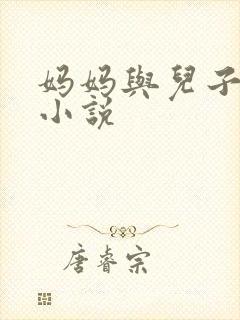 妈妈與兒子
小説
唐睿宗